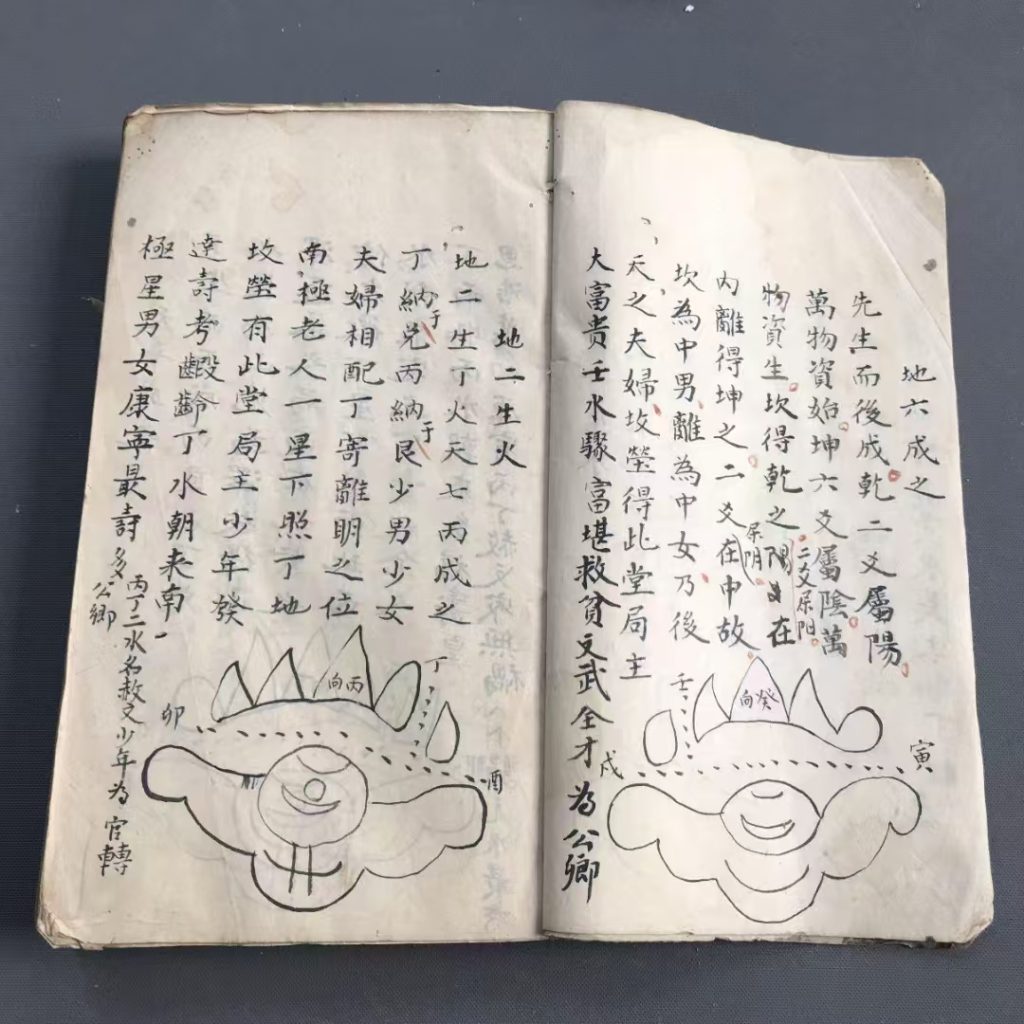 地六成之
先生而後成乾二爻屬陽
萬物資始坤六爻屬陰萬
物資生坎得乾之陽爻在
二爻屬陽
内離得坤之二爻在中故
屬阴
坎為中男離為中女乃後
天之夫婦坟塋得此堂局主
大富貴壬水驟富堪救貧文武全才為公卿
壬
癸向
戌
寅
地二生火
地二生丁火天七丙成之
丁納于兑丙納于艮少男少女
夫婦相配丁寄離明之位
南極老人一星下照丁地
坟塋有此堂局主少年發
達壽考齡丁水朝来南
極星男女康寧最壽多
公卿
丙丁二水名赦文少年為官轉
丁
丙向
卯
酉